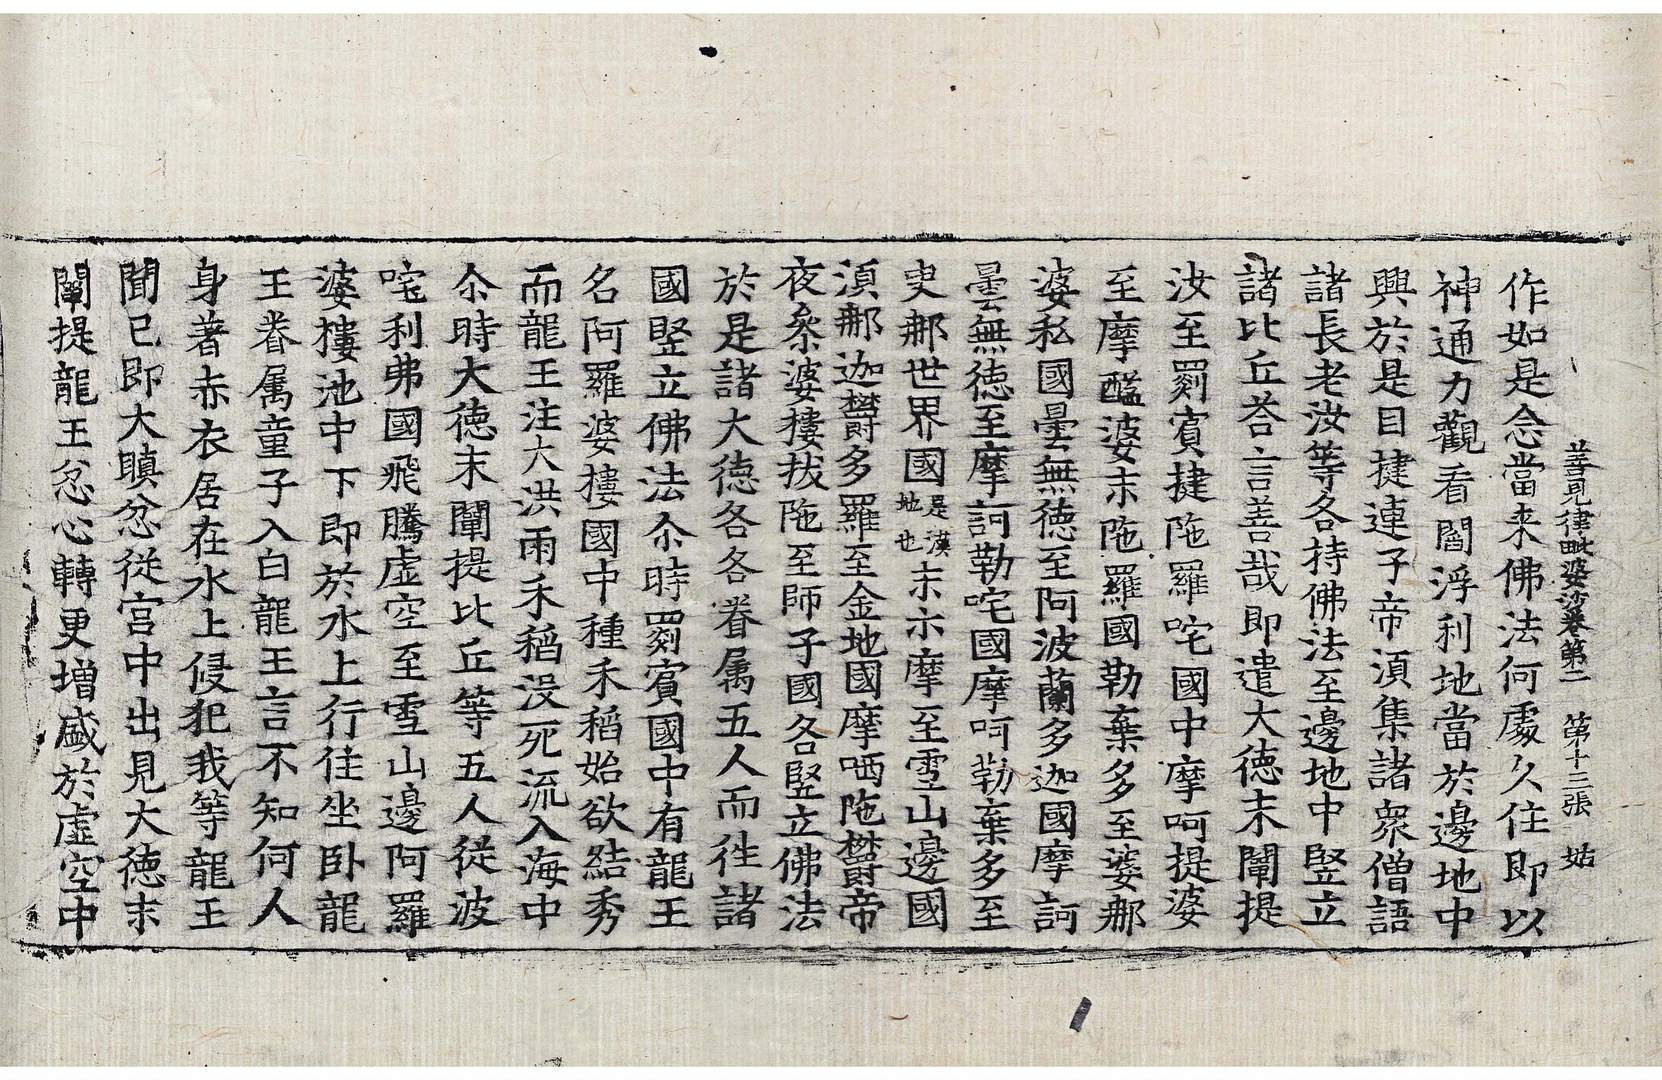 善見律毗婆沙卷第二　第十三張　姑
作如是念當来佛法何處久住即以
神通力觀看閻浮利地當於邊地中
興於是目揵連子帝湏集諸衆僧語
諸長老汝等各持佛法至邊地中竪立
諸比丘荅言善哉即遣大徳末闡提
汝至罽賓揵陁羅咤國中摩呵提婆
至摩醯婆末陁羅國勒棄多至婆那
婆私國曇無徳至阿波蘭多迦國摩訶
曇無徳至摩訶勒咤國摩呵勒棄多至
臾那世界國是漢地也末示摩至雪山邊國
湏那迦欝多羅至金地國摩哂陁欝帝
夜叅婆樓拔陁至師子國各竪立佛法
於是諸大徳各各眷属五人而徃諸
國竪立佛法尒時罽賓國中有龍王
名阿羅婆樓國中種禾稻始欲結秀
而龍王注大洪雨禾稻沒死流入海中
尒時大徳末闡提比丘等五人從波
咤利弗國飛騰虛空至雪山邊阿羅
婆樓池中下即於水上行住坐卧龍
王眷属童子入白龍王言不知何人
身著赤衣居在水上侵犯我等龍王
聞已即大瞋忿從宮中出見大徳末
闡提龍王忿心轉更增盛於虛空中